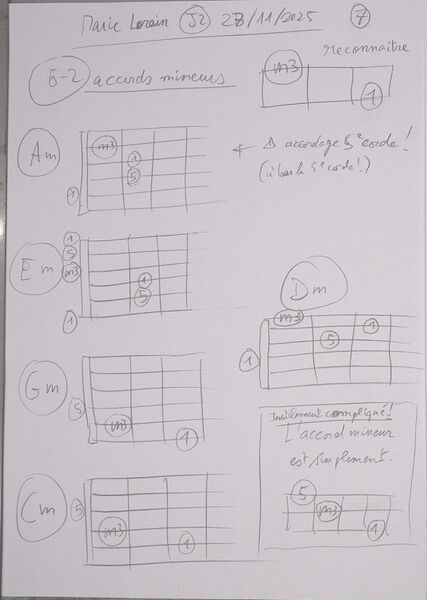 Marie Lorain J2 28/11/2025 7
6-2 accords mineurs
reconnaître
m3
1
Am
m3
1
5
1
← Δ accordage 5e corde!
(à bas la 5e corde!)
Em
1
5
m3
1
5
1
Dm
m3
5
1
1
Gm
5
m3
1
Cm
5
m3
1
Inutilement compliqué!
L'accord mineur
est simplement:
5
m3
1